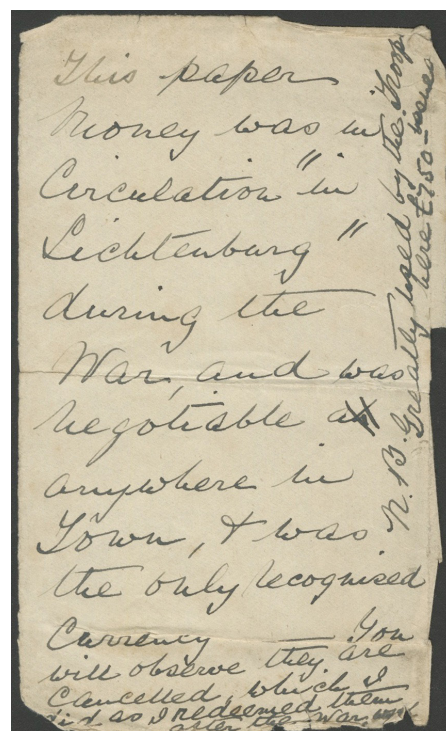 This paper
Money was in
Circulation "in
Lichtenburg"
during the
War, and was
negotiable
anywhere in
Town, & was
the only recognised
Currency — You
will observe they are
cancelled, which I
did as I redeemed them
after the War
N.B. Greatly used by the Troops
here £750 — issued